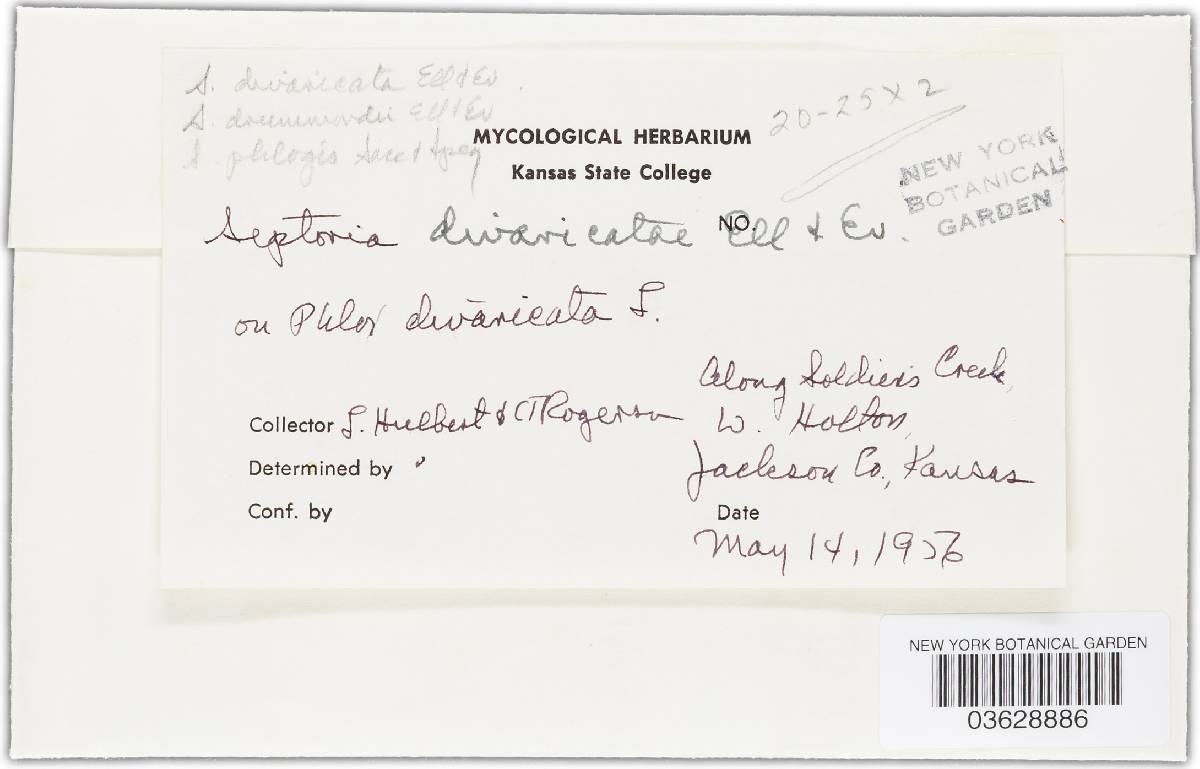 S. divaricata Ell & Ev.
S. drummondii Ell & Ev
S. phlogis Sacc & Speg
20-25 x 2
MYCOLOGICAL HERBARIUM
Kansas State College
NEW YORK
BOTANICAL
GARDEN
NO.
Septoria divaricatae Ell & Ev.
on Phlox divaricata L.
Along Soldiers Creek,
Collector L. Hulbert & CT Rogerson
W. Holton,
Determined by "
Jackson Co., Kansas
Conf. by
Date
May 14, 1956
NEW YORK BOTANICAL GARDEN
03628886